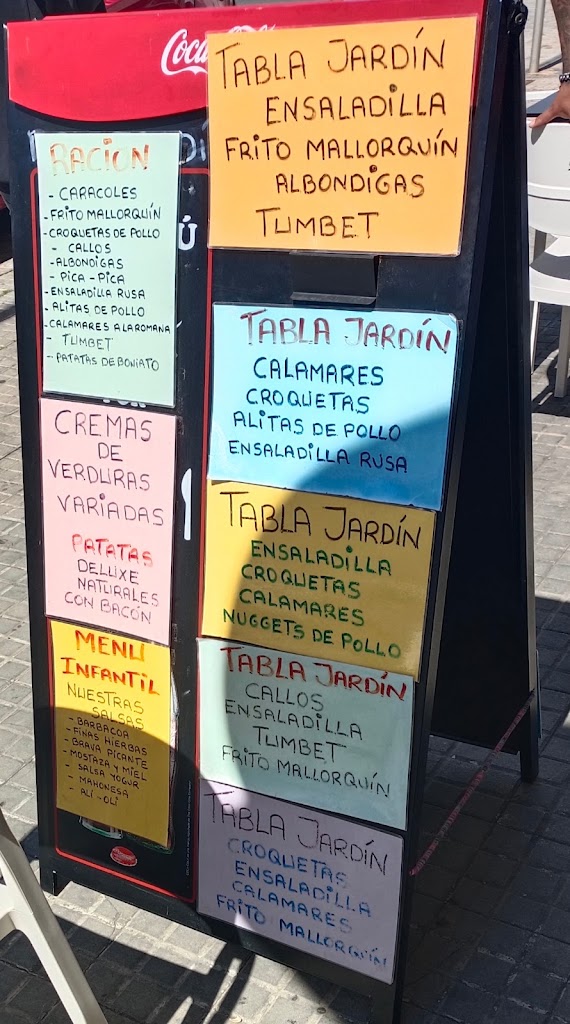 Coca
RACION
- CARACOLES
- FRITO MALLORQUÍN
- CROQUETAS DE POLLO
- CALLOS
- ALBONDIGAS
- PICA - PICA
- ENSALADILLA RUSA
- ALITAS DE POLLO
- CALAMARES A LA ROMANA
- TUMBET
- PATATAS DE BONIATO
CREMAS
DE
VERDURAS
VARIADAS
PATATAS
DELUXE
NATURALES
CON BACÓN
MENU
INFANTIL
NUESTRAS
SALSAS
- BARBACOA
- FINAS HIERBAS
- BRAVA PICANTE
- MOSTAZA Y MIEL
- SALSA YOGUR
- MAHONESA
- ALI - OLI
TABLA JARDÍN
ENSALADILLA
FRITO MALLORQUÍN
ALBONDIGAS
TUMBET
TABLA JARDÍN
CALAMARES
CROQUETAS
ALITAS DE POLLO
ENSALADILLA RUSA
TABLA JARDÍN
ENSALADILLA
CROQUETAS
CALAMARES
NUGGETS DE POLLO
TABLA JARDÍN
CALLOS
ENSALADILLA
TUMBET
FRITO MALLORQUÍN
TABLA JARDÍN
CROQUETAS
ENSALADILLA
CALAMARES
FRITO MALLORQUÍN